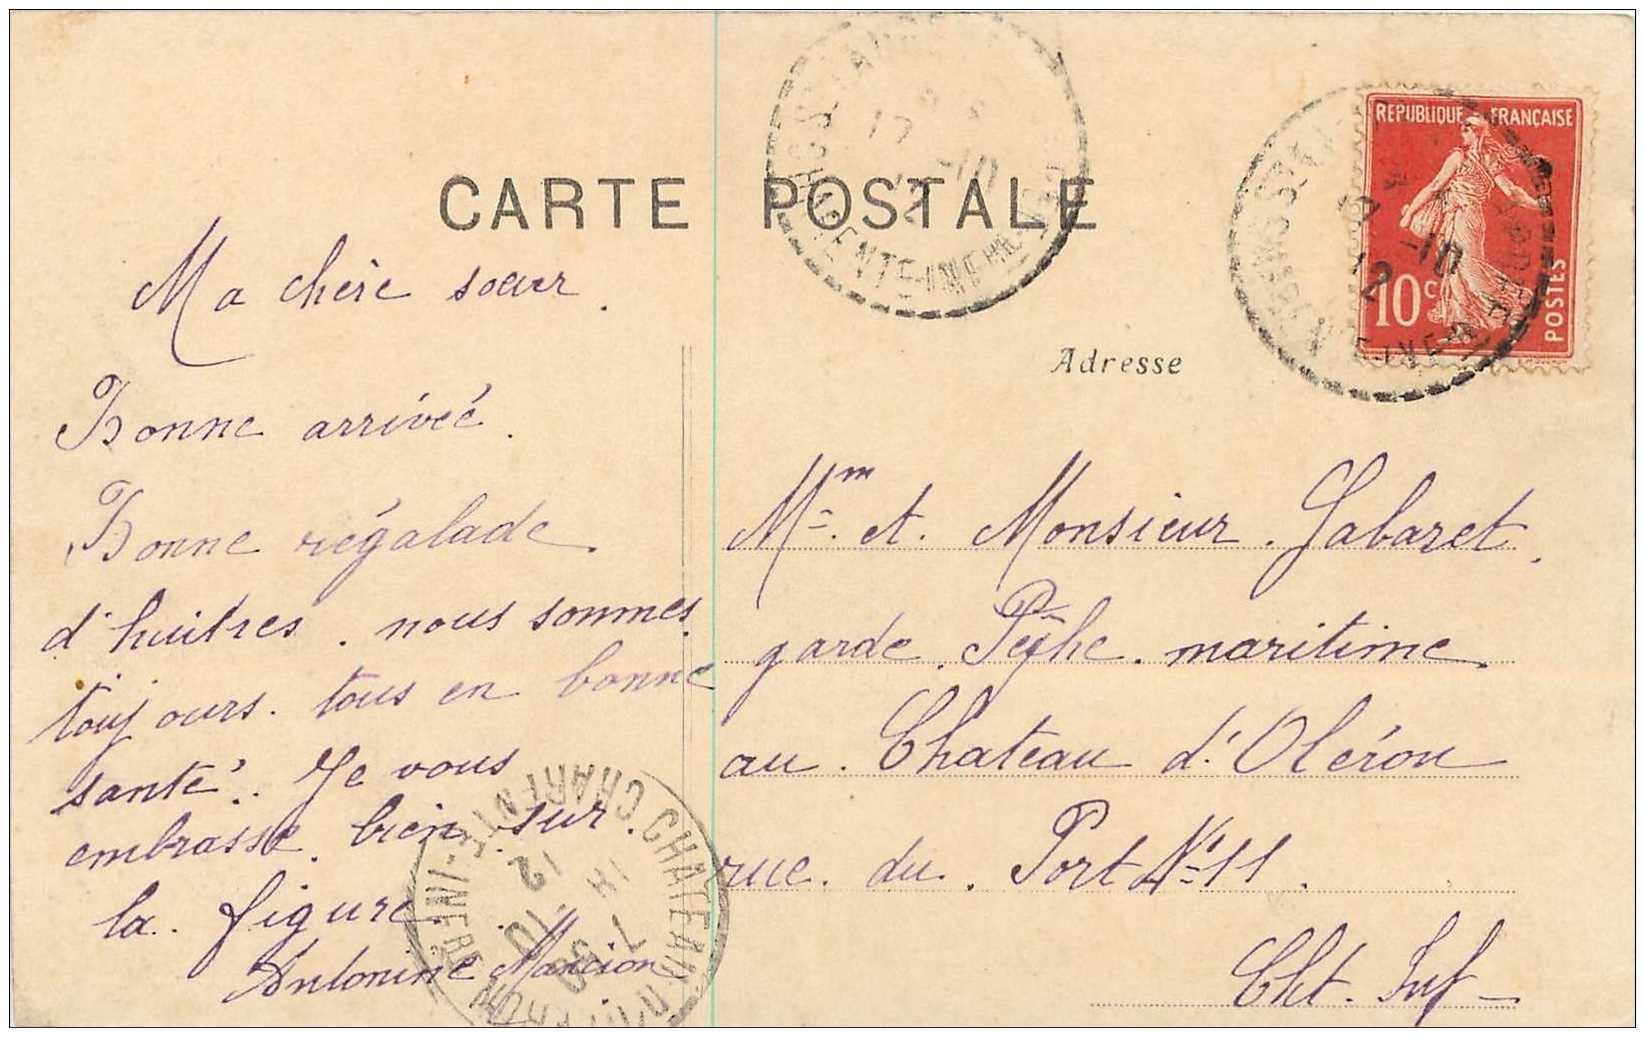 CARTE POSTALE
REPUBLIQUE FRANÇAISE
10c
POSTES
17 -10
12
CHARENTE-INFRE
17 -10
12
Adresse
Ma chère sœur.
Bonne arrivée.
Bonne régalade
d'huitres. nous sommes
toujours. tous en bonne
santé. Je vous
embrasse. bien. sur.
la. figure.
Antonine Mancion
Mme. et. Monsieur. Gabaret.
garde. Pêche. maritime
au. Chateau d'Oléron
rue. du. Port No 11.
Cht. Inf-
CHATEAU D'OLERON
CHARENTE-INFRE
7 30
10
12